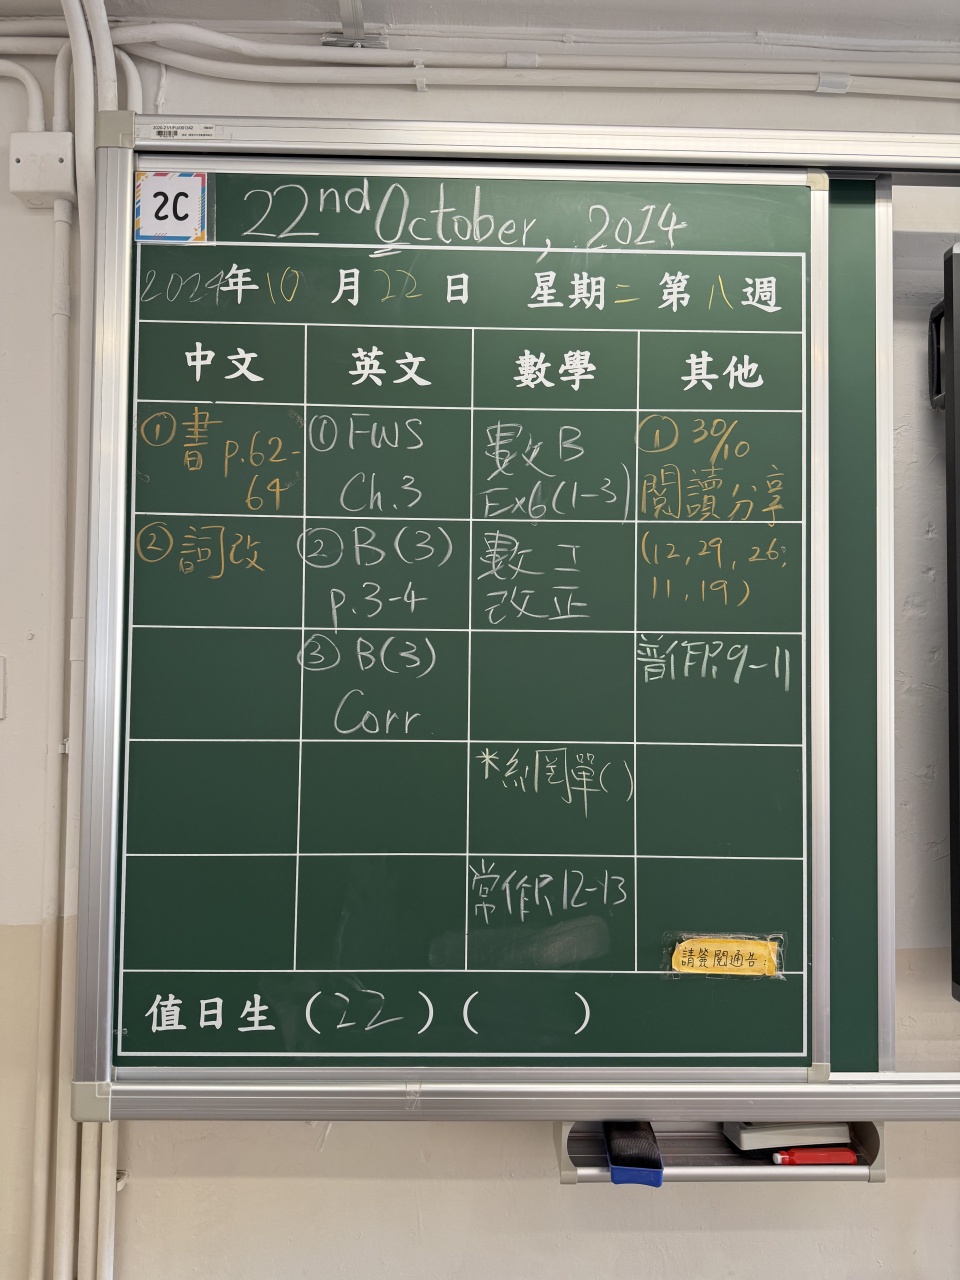 2C
22nd October, 2014
2024年10月22日 星期二 第八週
中文 英文 數學 其他
①書 p.62-
64
②詞改
①FWS
Ch.3
②B(3)
p.3-4
③B(3)
Corr
數B
Ex6(1-3)
數工
改正
*網單()
常作P.12-13
①30/10
閱讀分享
(12, 29, 26,
11, 19)
普作P.9-11
請簽閱通告
值日生(22)( )